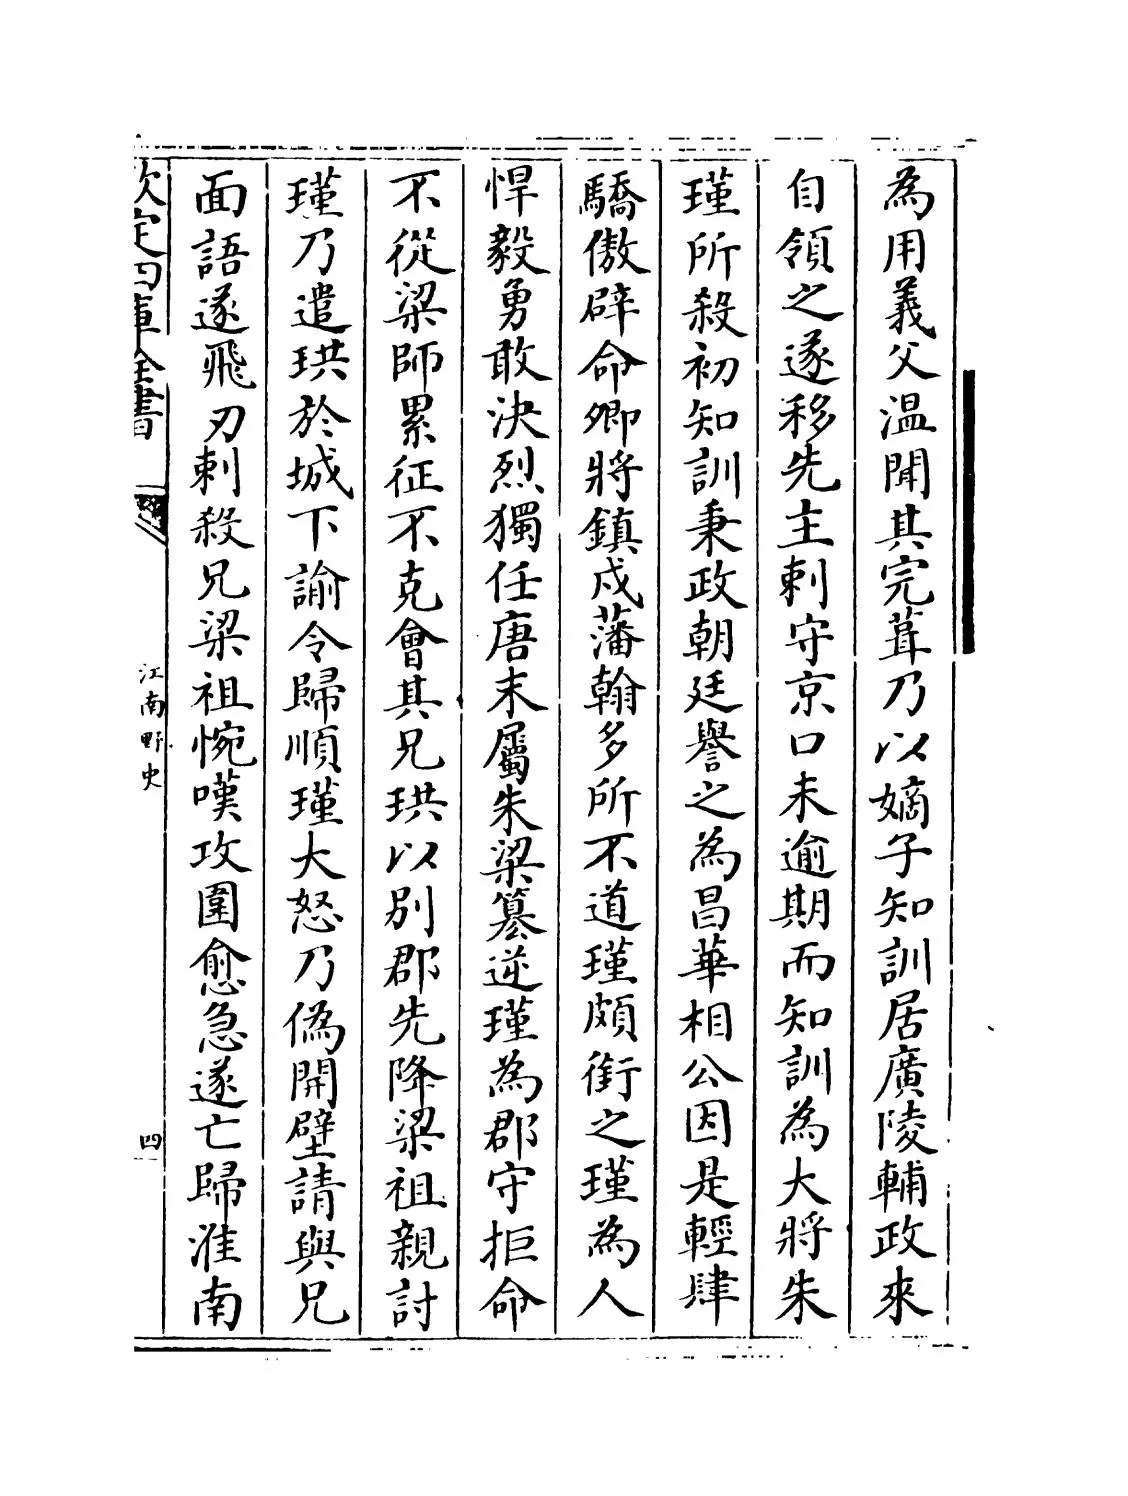 為用義父溫聞其完葺乃以嫡子知訓居廣陵輔政來
自領之遂移先主刺守京口未逾期而知訓為大將朱
瑾所殺初知訓秉政朝廷譽之為昌華相公因是輕肆
驕傲辟命卿將鎮戍藩翰多所不道瑾頗銜之瑾為人
悍毅勇敢決烈獨任唐末屬朱梁簒逆瑾為郡守拒命
不從梁師累征不克會其兄珙以別郡先降梁祖親討
瑾乃遣珙於城下諭令歸順瑾大怒乃偽開壁請與兄
面語遂飛刃刺殺兄梁祖惋嘆攻圍愈急遂亡歸淮南
欽定四庫全書
江南野史
四